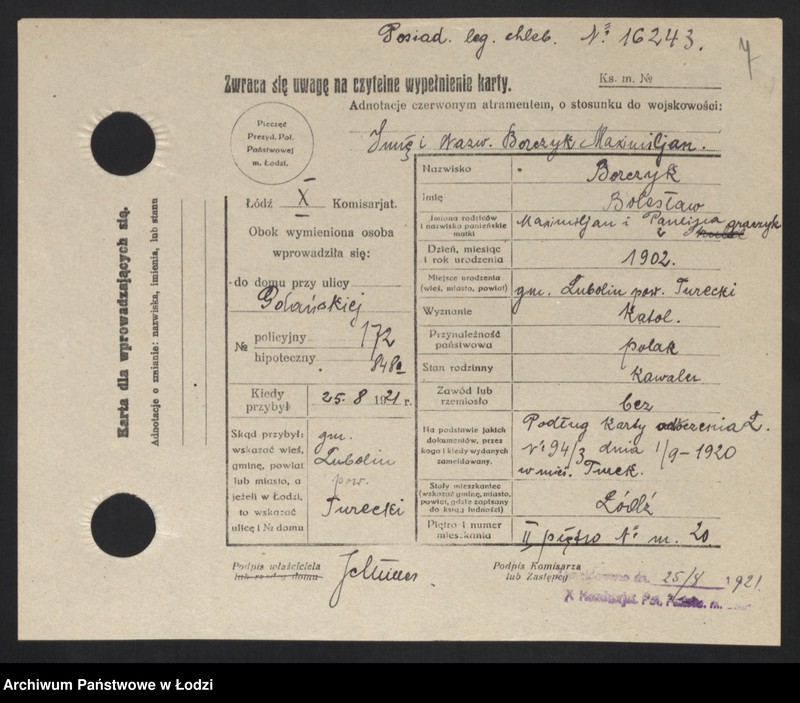 Posiad. leg. chleb. № 16243.
7
Zwraca się uwagę na czytelne wypełnienie karty.
Ks. m. №
Adnotacje czerwonym atramentem, o stosunku do wojskowości:
Pieczęć
Prezyd. Pol.
Państwowej
m. Łodzi.
Imię i Nazw. Borczyk Maximiljan.
Łódź X Komisarjat.
Obok wymieniona osoba
wprowadziła się:
do domu przy ulicy
Gdańskiej
№ policyjny 172
hipoteczny 848a
Kiedy przybył 25. 8 1921 r.
Skąd przybył:
wskazać wieś,
gminę, powiat
lub miasto, a
jeżeli w Łodzi,
to wskazać
ulicę i № domu
gm.
Lubolin
pow.
Turecki
Nazwisko Borczyk
Imię Bolesław
Imiona rodziców
i nazwisko panieńskie
matki
Maximiljan i
Dzień, miesiąc
i rok urodzenia
1902.
Miejsce urodzenia
(wieś, miasto, powiat)
gm. Lubolin pow. Turecki
Wyznanie Katol.
Przynależność
państwowa
polak
Stan rodzinny Kawaler
Zawód lub
rzemiosło
bez
Na podstawie jakich
dokumentów, przez
kogo i kiedy wydanych
zameldowany.
Podług Karty
№ 94/3 dnia 1/9-1920
Turek.
Stały mieszkaniec
(wskazać gminę, miasto,
powiat, gdzie zapisany
do ksiąg ludności)
Łódź
Piętro i numer
mieszkania
II piętro № m. 20
Podpis właściciela
lub rządcy domu
Podpis Komisarza
lub Zastępcy
25/8 1921
X Komisarjat Pol. Państw. m.
Karta dla wprowadzających się.
Adnotacje o zmianie: nazwiska, imienia, lub stanu
Archiwum Państwowe w Łodzi